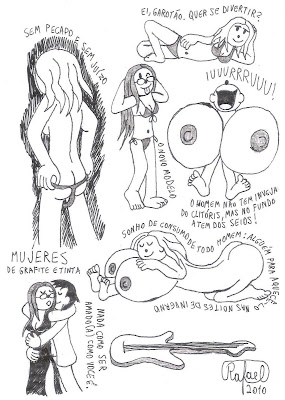 EI, GAROTÃO. QUER SE DIVERTIR?
SEM PECADO E SEM JUÍZO
IUUURRRUUU!
O NOVO MODELO
O HOMEM NÃO TEM INVEJA
DO CLITÓRIS, MAS NO FUNDO
A TEM DOS SEIOS!
MUJERES
DE GRAFITE E TINTA
SONHO DE CONSUMO DE TODO HOMEM: ALGUÉM PARA AQUECÊ-
LO NAS NOITES DE INVERNO
NADA COMO SER
AMADO(A) COMO VOCÊ É.
Rafael
2010